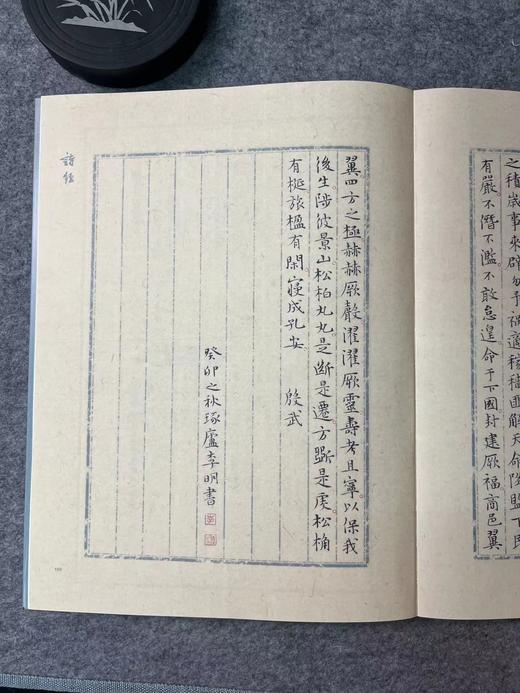 之績歲事來辟勿予禍適稼穡匪解天命降監下民
有嚴不僭不濫不敢怠遑命于下國封建厥福商邑翼
翼四方之極赫赫厥聲濯濯厥靈壽考且寧以保我
後生陟彼景山松柏丸丸是斷是遷方斲是虔松桷
有梴旅楹有閑寢成孔安 殷武
癸卯之秋琢廬李明書
詩經